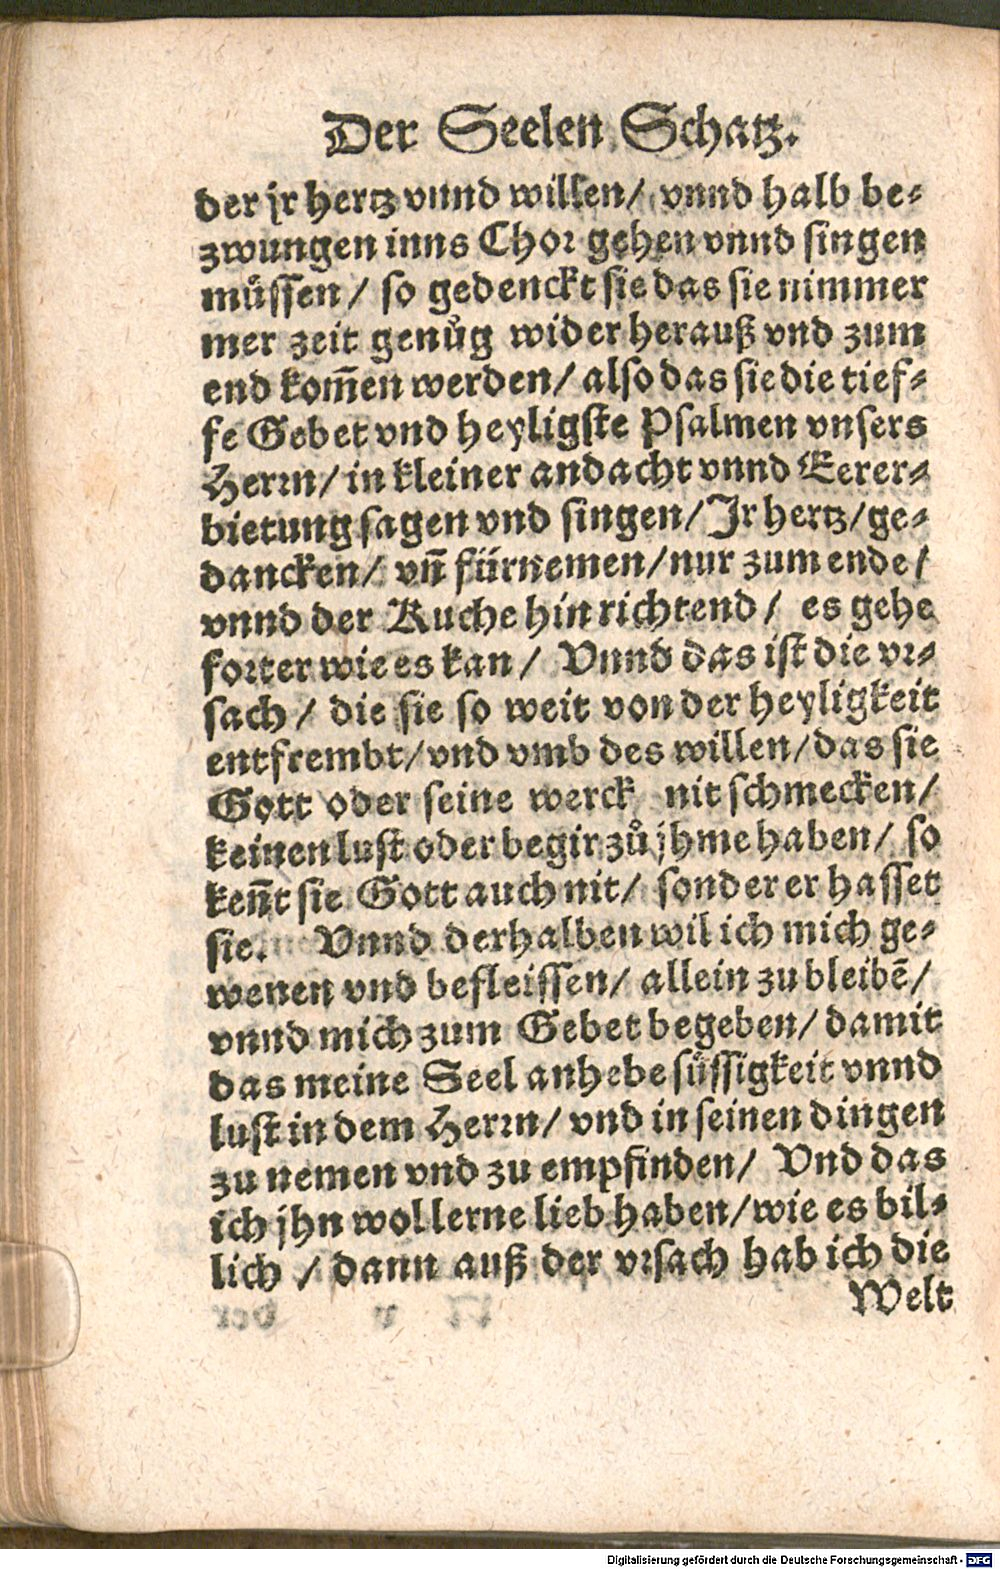 Der Seelen Schatz.
der jr hertz vnnd willen/ vnnd halb be-
zwungen inns Chor gehen vnnd singen
müssen/ so gedenckt sie das sie nimmer
mer zeit genůg wider herauß vnd zum
end kom̃en werden/ also das sie die tief-
fe Gebet vnd heyligste Psalmen vnsers
Herrn/ in kleiner andacht vnnd Eerer-
bietung sagen vnd singen/ Jr hertz/ ge-
dancken/ vñ fürnemen/ nur zum ende/
vnnd der Kuche hin richtend/ es gehe
forter wie es kan/ Vnnd das ist die vr-
sach/ die sie so weit von der heyligkeit
entfrembt/ vnd vmb des willen/ das sie
Gott oder seine werck nit schmecken/
keinen lust oder begir zů jhme haben/ so
keñt sie Gott auch nit/ sonder er hasset
sie. Vnnd derhalben wil ich mich ge-
wenen vnd befleissen/ allein zu bleibẽ/
vnnd mich zum Gebet begeben/ damit
das meine Seel anhebe süssigkeit vnnd
lust in dem Herrn/ vnd in seinen dingen
zu nemen vnd zu empfinden/ Vnd das
ich jhn wol lerne lieb haben/ wie es bil-
lich/ dann auß der vrsach hab ich die
Welt
Digitalisierung gefördert durch die Deutsche Forschungsgemeinschaft - DFG